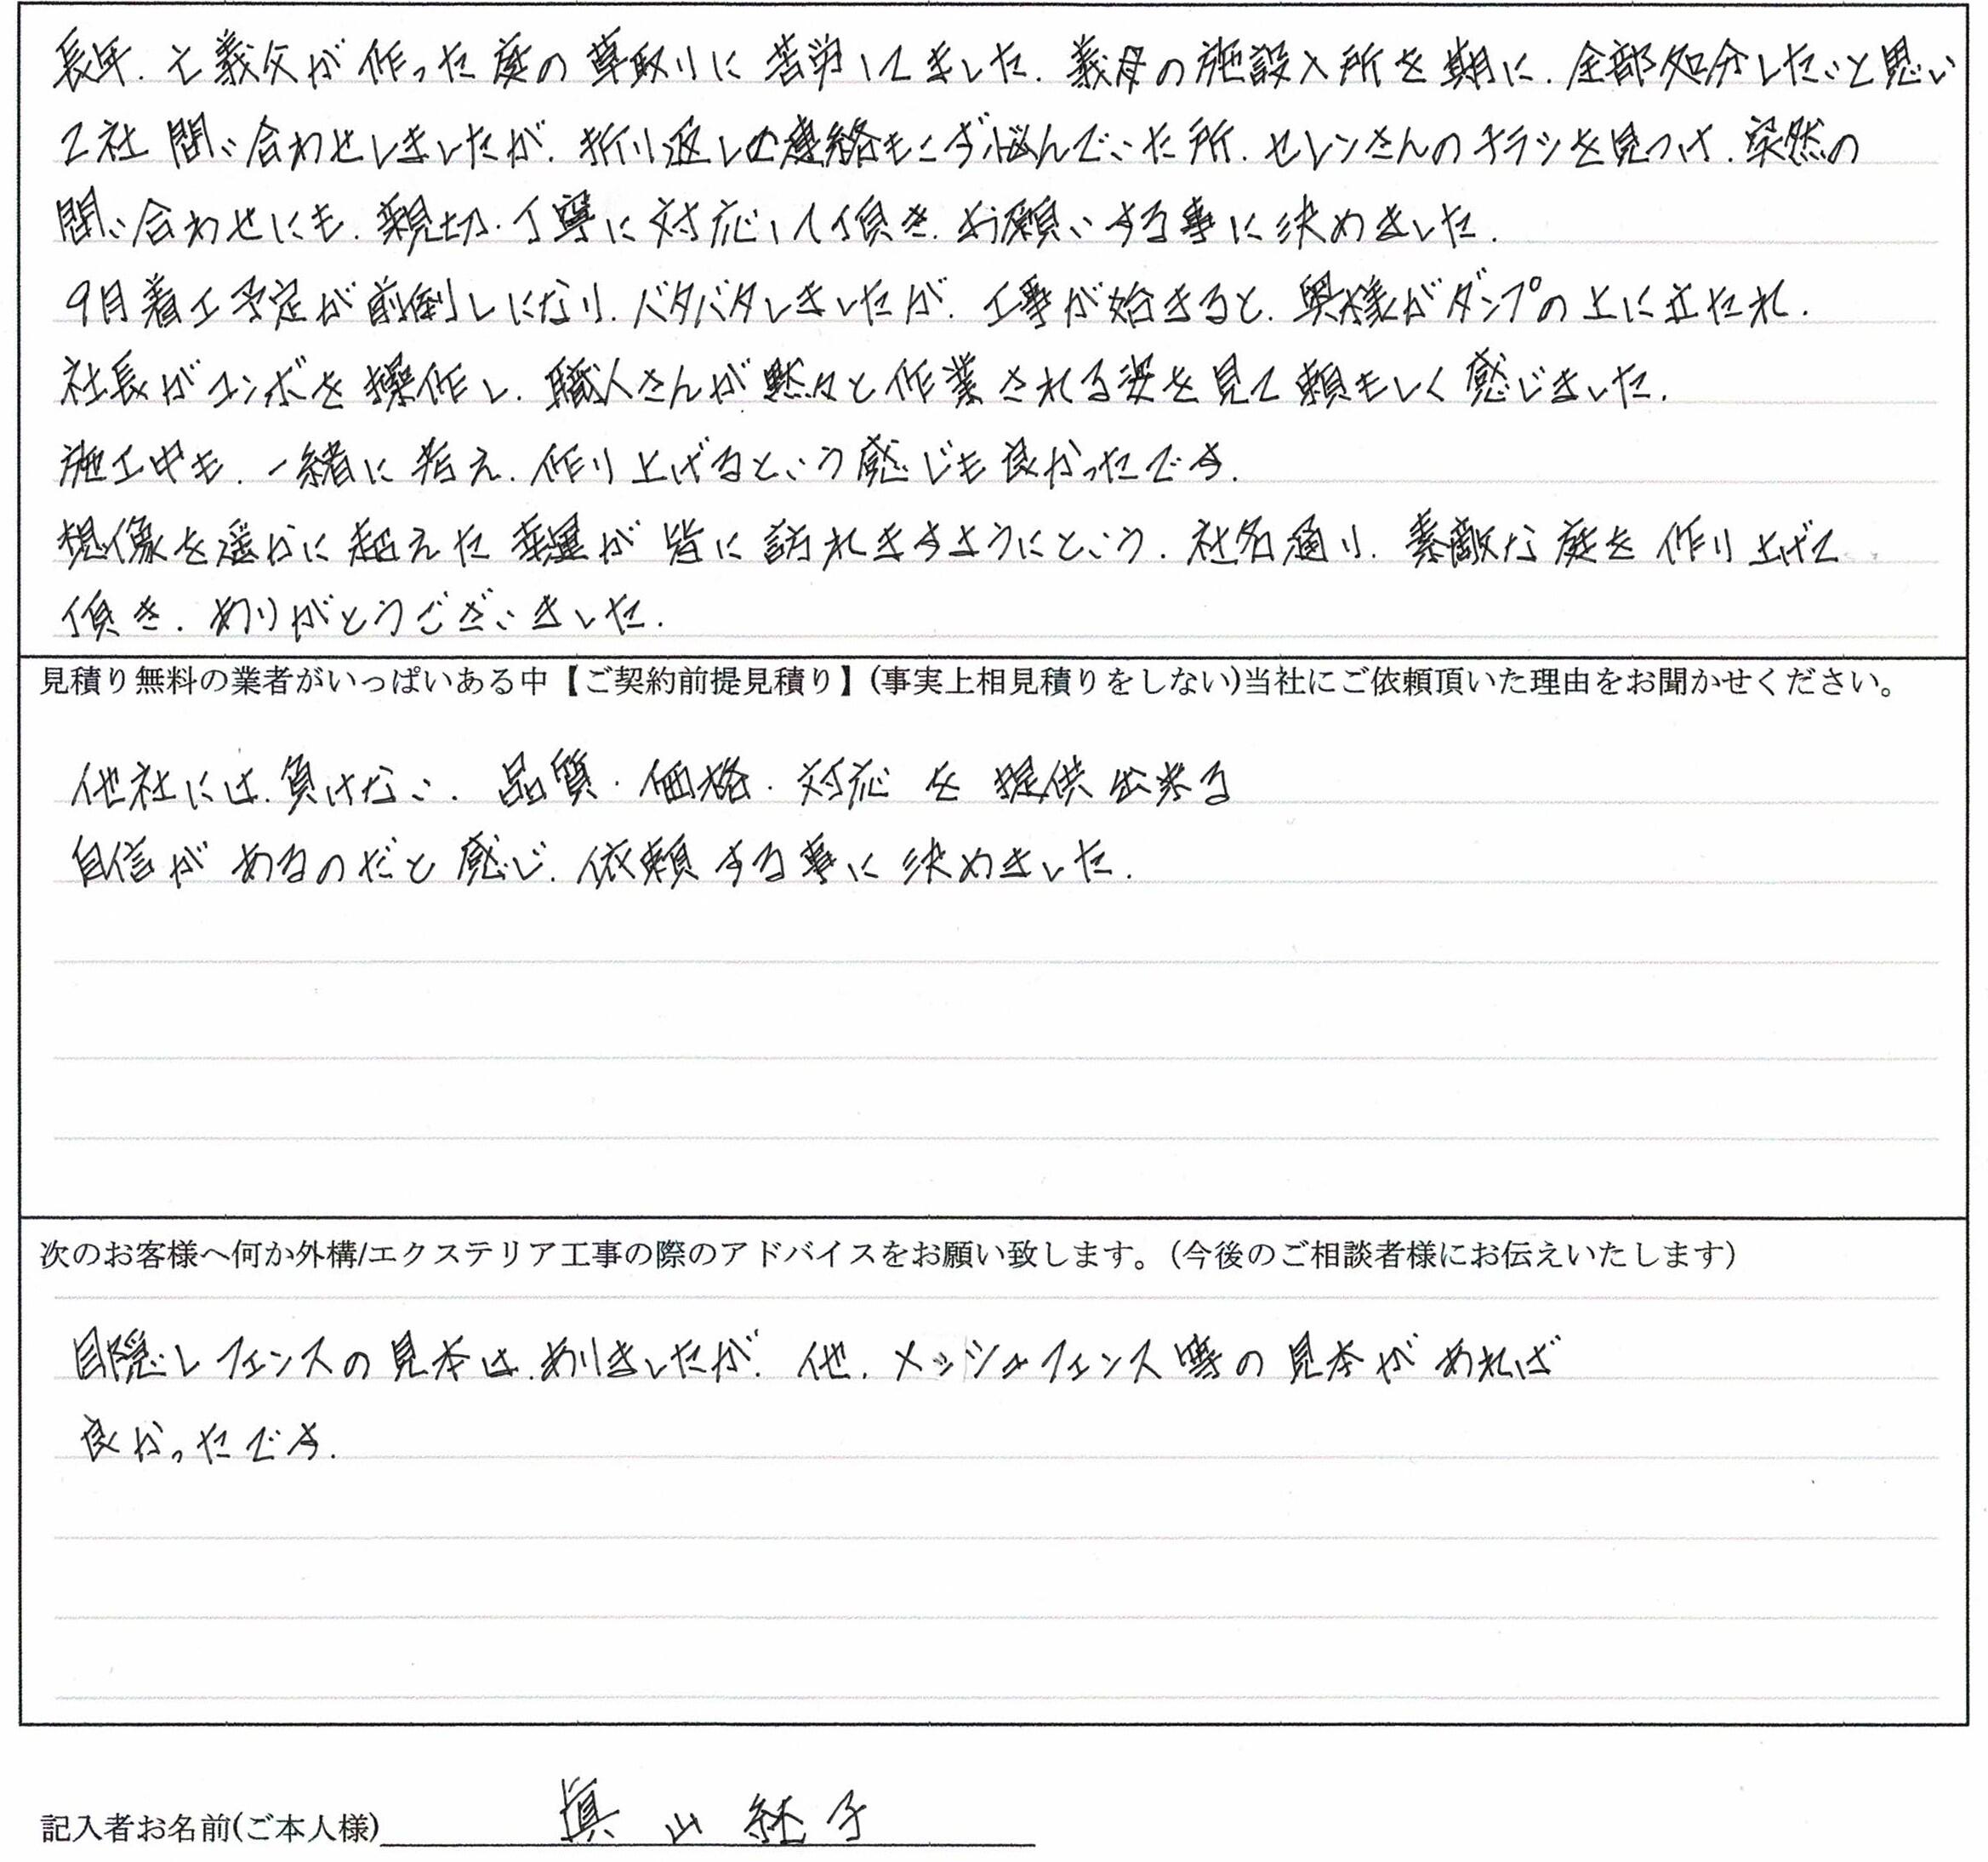 長年、亡義父が作った庭の草取りに苦労してました。義母の施設入所を期に、全部処分したいと思い
2社問い合わせしましたが、折り返しの連絡もこず悩んでいた所、セレンさんのチラシを見つけ、突然の
問い合わせにも、親切・丁寧に対応して頂き、お願いする事に決めました。
9月着工予定が前倒しになり、バタバタしましたが、工事が始まると、奥様がダンプの上に立たれ、
社長がユンボを操作し、職人さんが黙々と作業される姿を見て頼もしく感じました。
施工中も、一緒に考え、作り上げるという感じも良かったです。
想像を遥かに超えた幸運が皆に訪れますようにという、社名通り、素敵な庭を作り上げて
頂き、ありがとうございました。
見積り無料の業者がいっぱいある中【ご契約前提見積り】(事実上相見積りをしない)当社にご依頼頂いた理由をお聞かせください。
他社には、負けない、品質・価格・対応を提供出来る
自信があるのだと感じ、依頼する事に決めました。
次のお客様へ何か外構/エクステリア工事の際のアドバイスをお願い致します。(今後のご相談者様にお伝えいたします)
目隠しフェンスの見本は、ありましたが、他、メッシュフェンス等の見本があれば
良かったです。
記入者お名前(ご本人様) 眞山 子